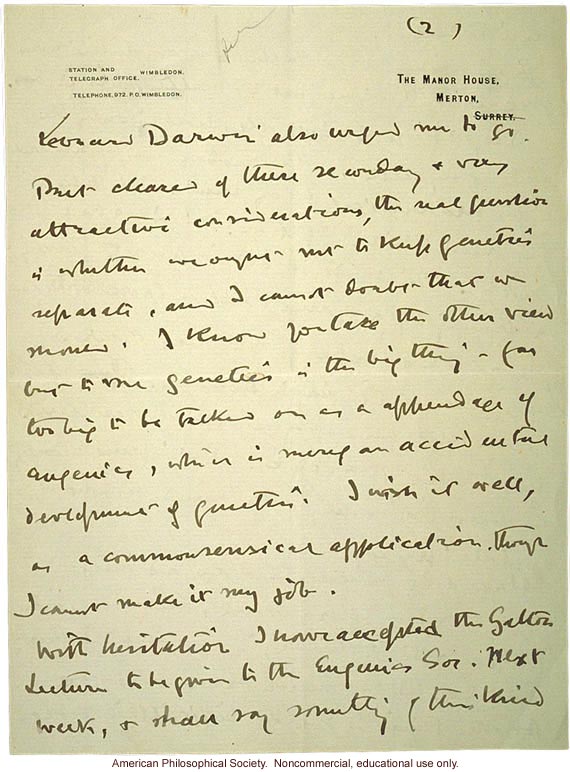 (2)
STATION AND
TELEGRAPH OFFICE, WIMBLEDON.
TELEPHONE, 972. P.O. WIMBLEDON.
THE MANOR HOUSE,
MERTON,
SURREY.
Leonard Darwin also urged me to go.
But cleared of these secondary & very
attractive considerations, the real question
is whether we ought not to keep genetics
separate, and I cannot doubt that we
should. I know you take the other view
but to me genetics is the big thing - far
too big to be talked on as a appendage of
eugenics, which is merely an accidental
development of genetics. I wish it well,
as a commonsensical application, though
I cannot make it my job.
With hesitation I have accepted the Galton
Lecture to be given to the Eugenics Soc. next
week, & shall say something of this kind
American Philosophical Society. Noncommercial, educational use only.